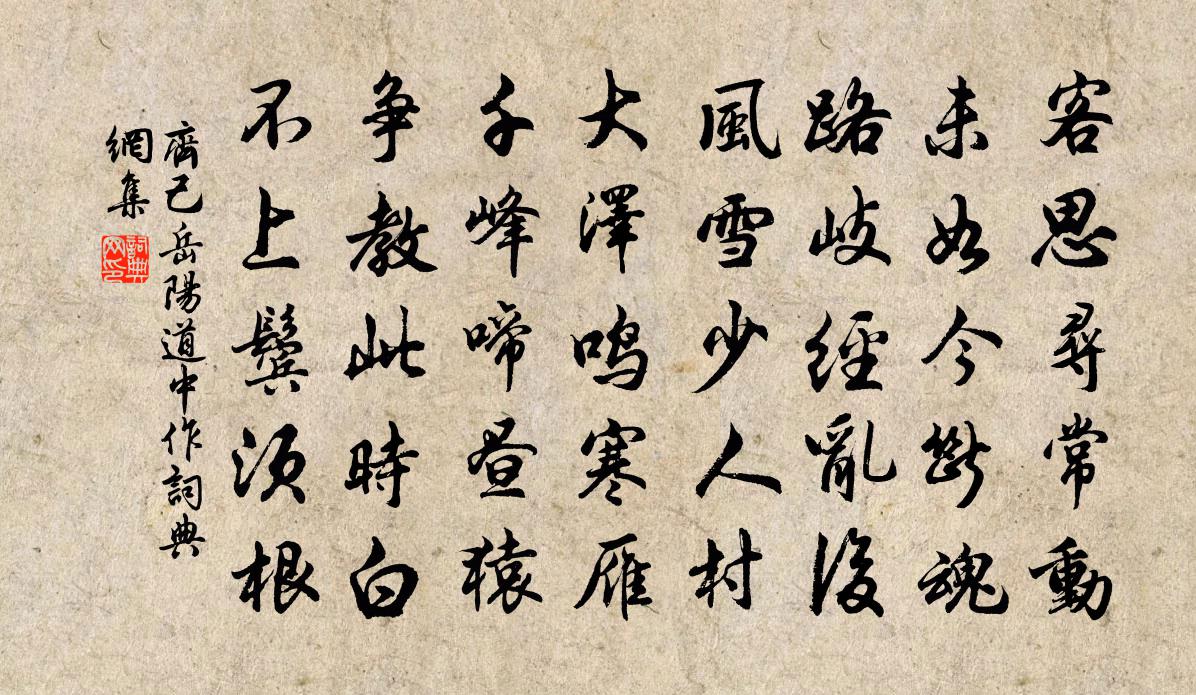 客思尋常動
未如今斷魂
路岐經亂後
風雪少人村
大澤鳴寒雁
千峰啼晝猿
爭教此時白
不上鬢須根
齊己岳陽道中作詞典
網集
詞典
网印